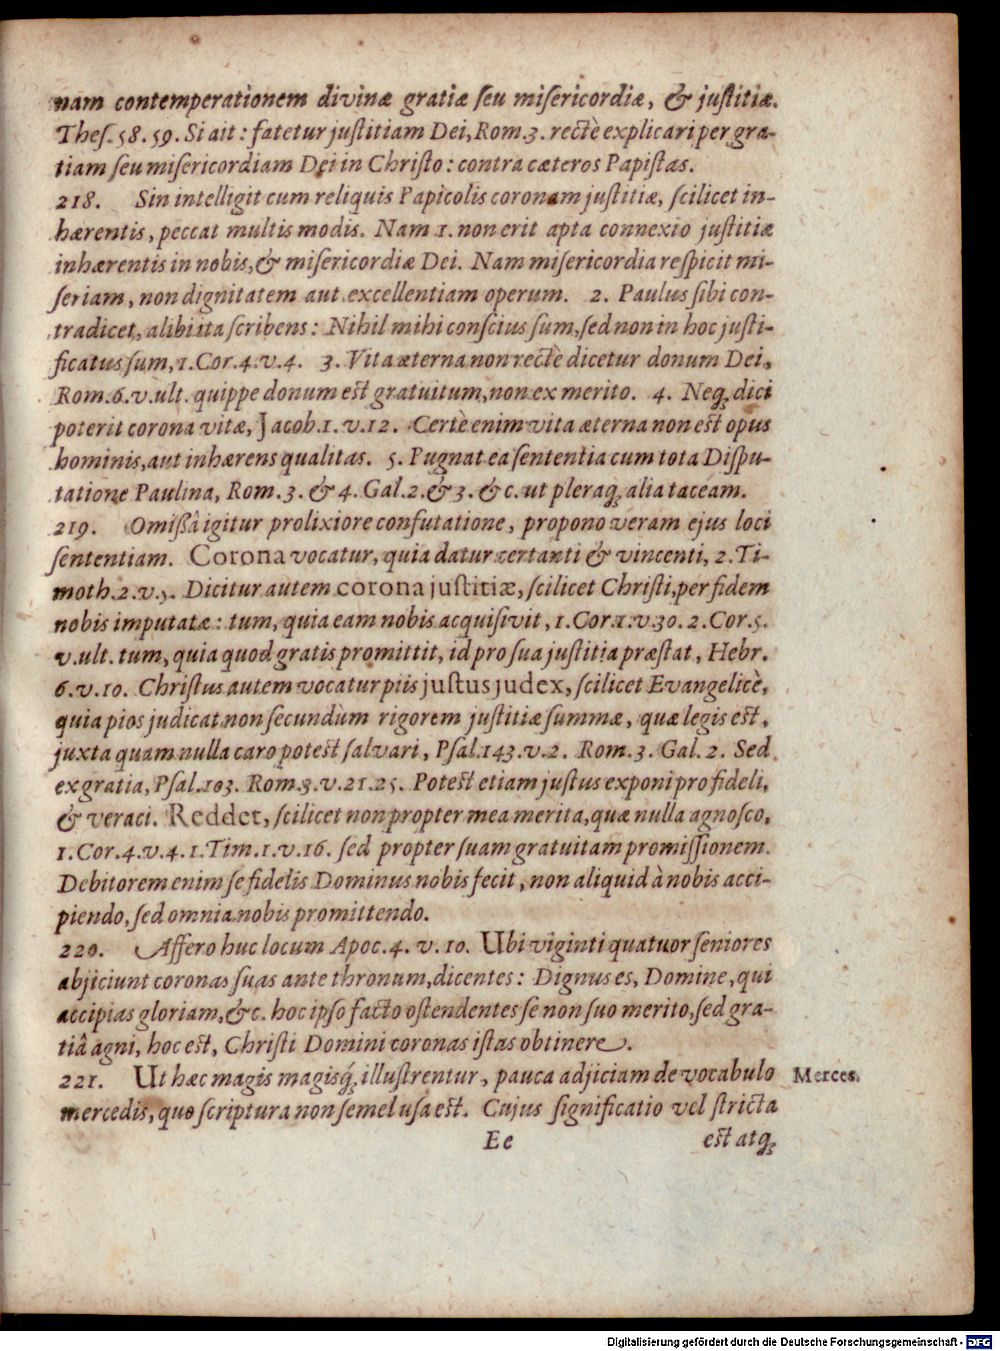 nam contemperationem divinæ gratiæ ſeu miſericordiæ, & juſtitiæ.
Theſ. 58. 59. Si ait: fatetur juſtitiam Dei, Rom. 3. rectè explicari per gra-
tiam ſeu miſericordiam Dei in Chriſto: contra cæteros Papiſtas.
218. Sin intelligit cum reliquis Papicolis coronam juſtitiæ, ſcilicet in-
hærentis, peccat multis modis. Nam 1. non erit apta connexio juſtitiæ
inhærentis in nobis, & miſericordiæ Dei. Nam miſericordia reſpicit mi-
ſeriam, non dignitatem aut excellentiam operum. 2. Paulus ſibi con-
tradicet, alibi ita ſcribens: Nihil mihi conſcius ſum, ſed non in hoc juſti-
ficatus ſum, 1. Cor. 4. v. 4. 3. Vita æterna non rectè dicetur donum Dei,
Rom. 6. v. ult. quippe donum eſt gratuitum, non ex merito. 4. Neq; dici
poterit corona vitæ, Jacob. 1. v. 12. Certè enim vita æterna non eſt opus
hominis, aut inhærens qualitas. 5. Pugnat ea ſententia cum tota Diſpu-
tatione Paulina, Rom. 3. & 4. Gal. 2. & 3. &c. ut pleraq; alia taceam.
219. Omiſsâ igitur prolixiore confutatione, propono veram ejus loci
ſententiam. Corona vocatur, quia datur certanti & vincenti, 2. Ti-
moth. 2. v. 5. Dicitur autem corona juſtitiæ, ſcilicet Chriſti, per fidem
nobis imputatæ: tum, quia eam nobis acquiſivit, 1. Cor. 1. v. 30. 2. Cor. 5.
v. ult. tum, quia quod gratis promittit, id pro ſua juſtitia præſtat, Hebr.
6. v. 10. Chriſtus autem vocatur piis juſtus judex, ſcilicet Evangelicè,
quia pios judicat non ſecundùm rigorem juſtitiæ ſummæ, quæ legis eſt,
juxta quam nulla caro poteſt ſalvari, Pſal. 143. v. 2. Rom. 3. Gal. 2. Sed
ex gratia, Pſal. 103. Rom. 3. v. 21. 25. Poteſt etiam juſtus exponi pro fideli,
& veraci. Reddet, ſcilicet non propter mea merita, quæ nulla agnoſco,
1. Cor. 4. v. 4. 1. Tim. 1. v. 16. ſed propter ſuam gratuitam promiſſionem.
Debitorem enim ſe fidelis Dominus nobis fecit, non aliquid à nobis acci-
piendo, ſed omnia nobis promittendo.
220. Affero huc locum Apoc. 4. v. 10. Ubi viginti quatuor ſeniores
abjiciunt coronas ſuas ante thronum, dicentes: Dignus es, Domine, qui
accipias gloriam, &c. hoc ipſo facto oſtendentes ſe non ſuo merito, ſed gra-
tiâ agni, hoc eſt, Chriſti Domini coronas iſtas obtinere.
221. Ut hæc magis magisq́; illuſtrentur, pauca adjiciam de vocabulo
Merces.
mercedis, quo ſcriptura non ſemel uſa eſt. Cujus ſignificatio vel ſtricta
Ee eſt atq;
Digitalisierung gefördert durch die Deutsche Forschungsgemeinschaft - DFG